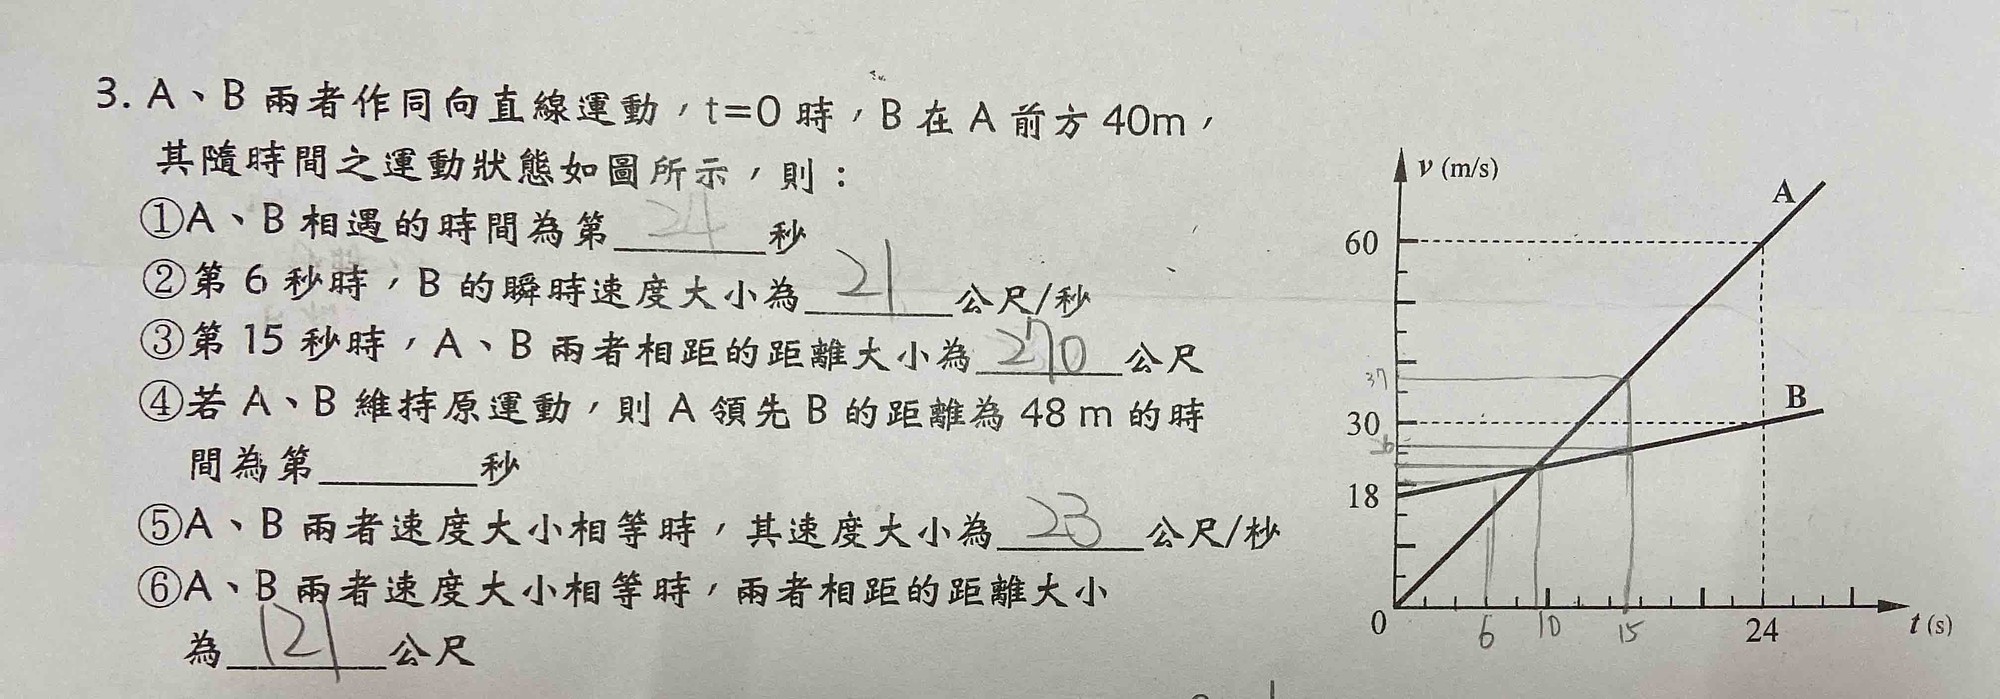 3. A、B 兩者作同向直線運動，t=0 時，B 在 A 前方 40m，
其隨時間之運動狀態如圖所示，則：
①A、B 相遇的時間為第 24 秒
②第 6 秒時，B 的瞬時速度大小為 21 公尺/秒
③第 15 秒時，A、B 兩者相距的距離大小為 270 公尺
④若 A、B 維持原運動，則 A 領先 B 的距離為 48 m 的時
間為第______秒
⑤A、B 兩者速度大小相等時，其速度大小為 23 公尺/秒
⑥A、B 兩者速度大小相等時，兩者相距的距離大小
為 121 公尺
v (m/s)
A
60
37
B
30
26
18
0
6
10
15
24
t (s)